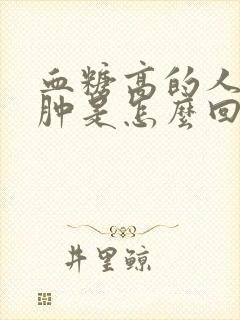 血糖高的人
肿是怎麼回
井里鲸